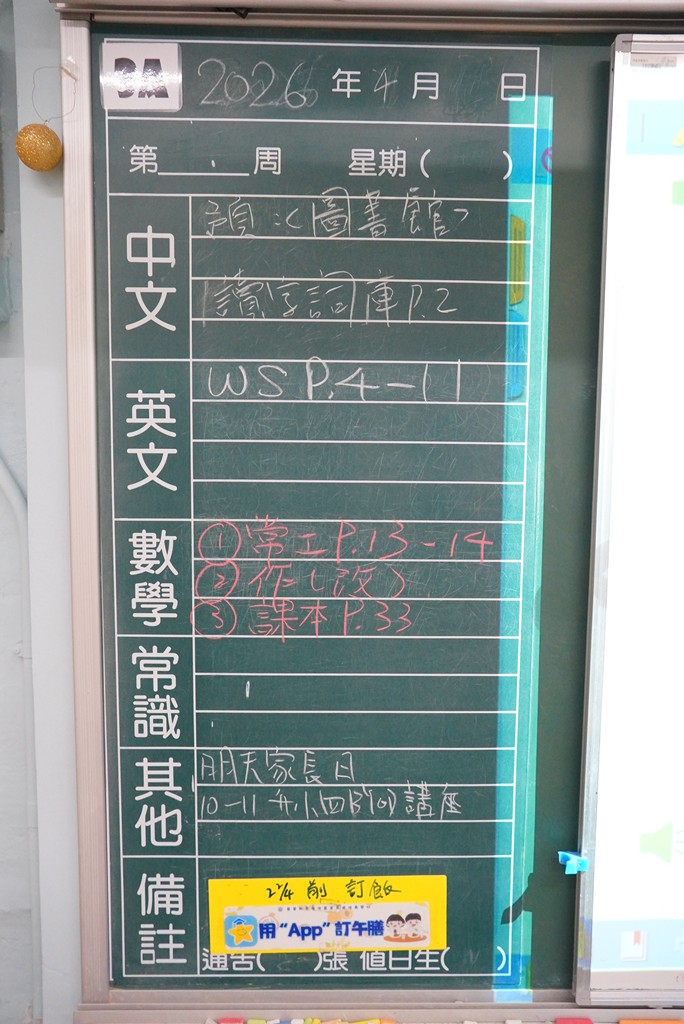 3A 2026年4月 日
第 周 星期( )
中文
預:<圖書館>
讀字詞庫P.2
英文
WS P.4-11
數學
① 常工P.13-14
② 作(改)
③ 課本P.33
常識
其他
明天家長日
10-11 升小四 講座
備註
22/4 前 訂飯
用“App”訂午膳
通告( )張 值日生( )